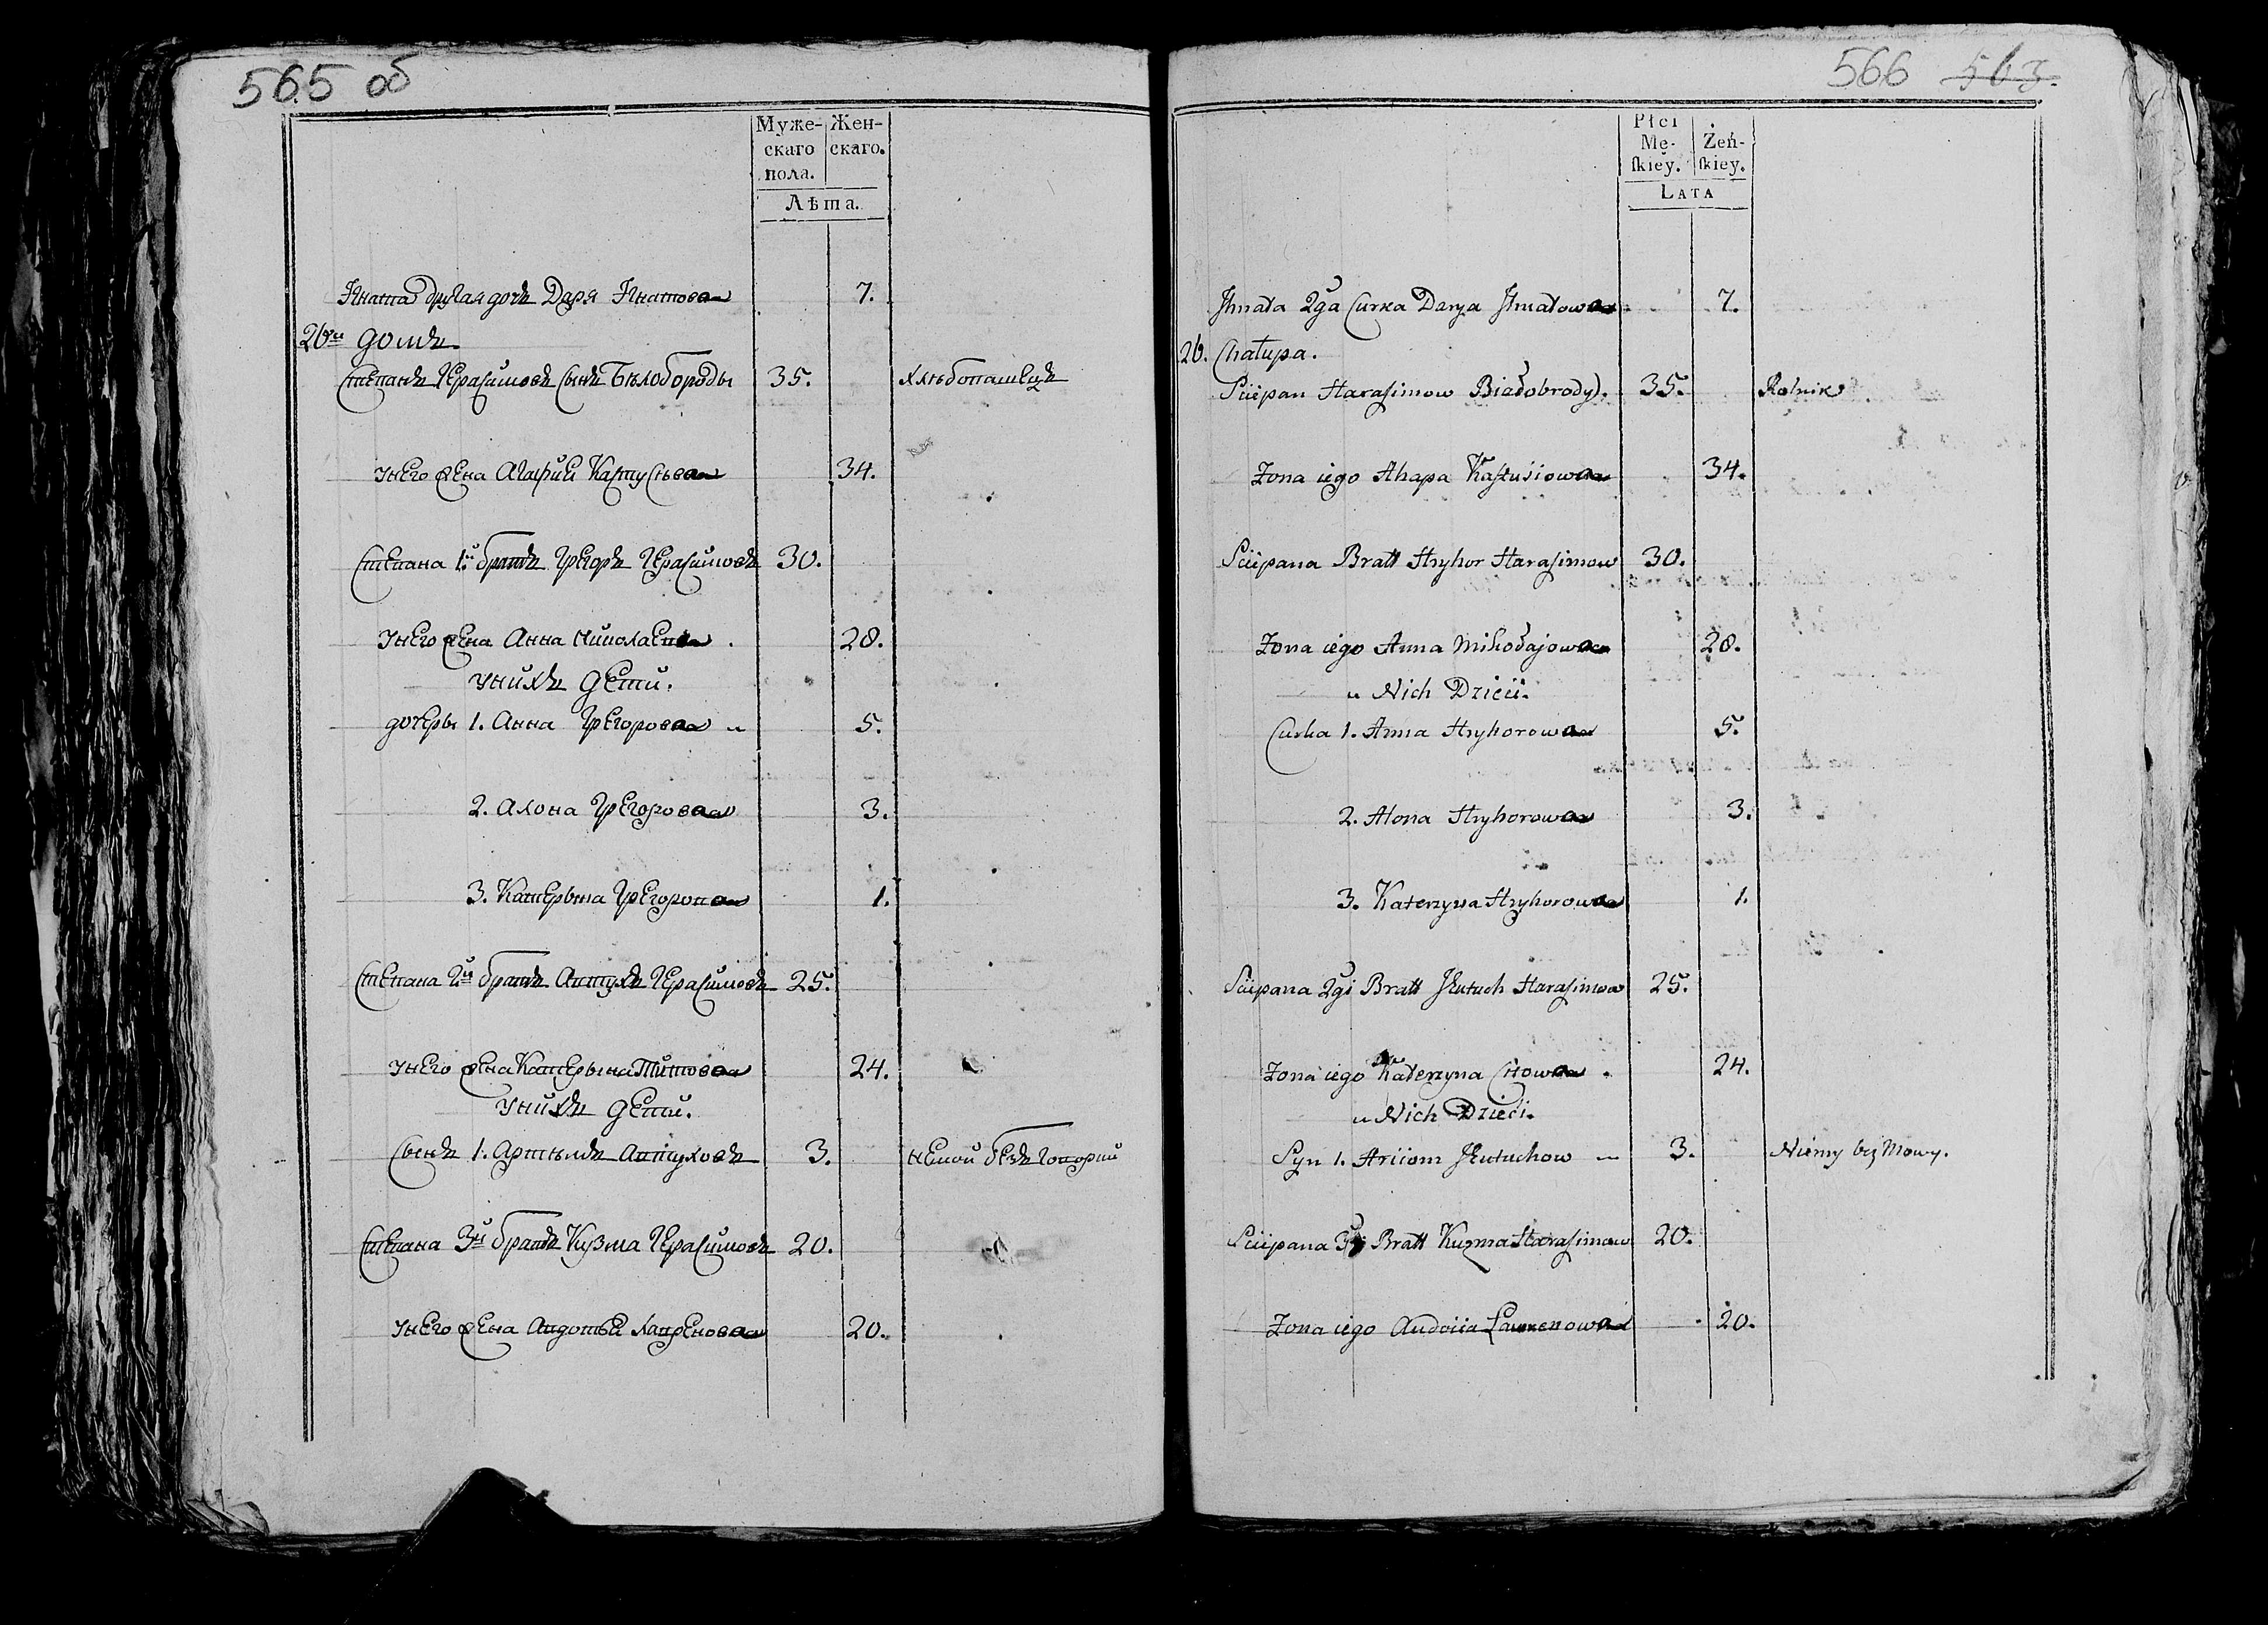 565 об
Муже- Жен-
скаго скаго.
пола.
Лѣта.
Игната другая дочъ Даря Игнатова 7.
26й домъ.
Степанъ Герасимовъ сынъ Бѣлобороды 35. хлѣбопашецъ
унего жена Агафия Кастусѣва 34.
Степана 1й братъ Грегоръ Герасимовъ 30.
унего жена Анна Николаева 28.
унихъ дети.
дочеры 1. Анна Грегорова 5.
2. Алона Грегорова 3.
3. Катерына Грегорова 1.
Степана 2й братъ Автухъ Герасимовъ 25.
унего жена Катерына Титова 24.
унихъ дети.
сынъ 1. Артѣмъ Автуховъ 3. немой безъ говории
Степана 3й братъ Кузма Герасимовъ 20.
унего жена Авдотья Лавренова 20.
566 563.
Płci
Mę- Żeń-
ſkiey. ſkiey.
LATA
Ihnata 2ga Curka Darya Ihnatowa 7.
26. Chałupa.
Sciepan Harasimow Białobrody. 35. Rolnik
Zona iego Ahapa Kastusiowa 34.
Sciepana Bratt Hryhor Harasimow 30.
Zona iego Anna Mikołajowa 28.
u Nich Dzieci.
Curka 1. Anna Hryhorowa 5.
2. Alona Hryhorowa 3.
3. Katerzyna Hryhorowa 1.
Sciepana 2gi Bratt Jeutuch Harasimow 25.
Zona iego Katerzyna Citowa 24.
u Nich Dzieci.
Syn 1. Arciom Jeutuchow 3. Niemy bez Mowy.
Sciepana 3ci Bratt Kuzma Harasimow 20.
Zona iego Audocia Laurenowa 20.